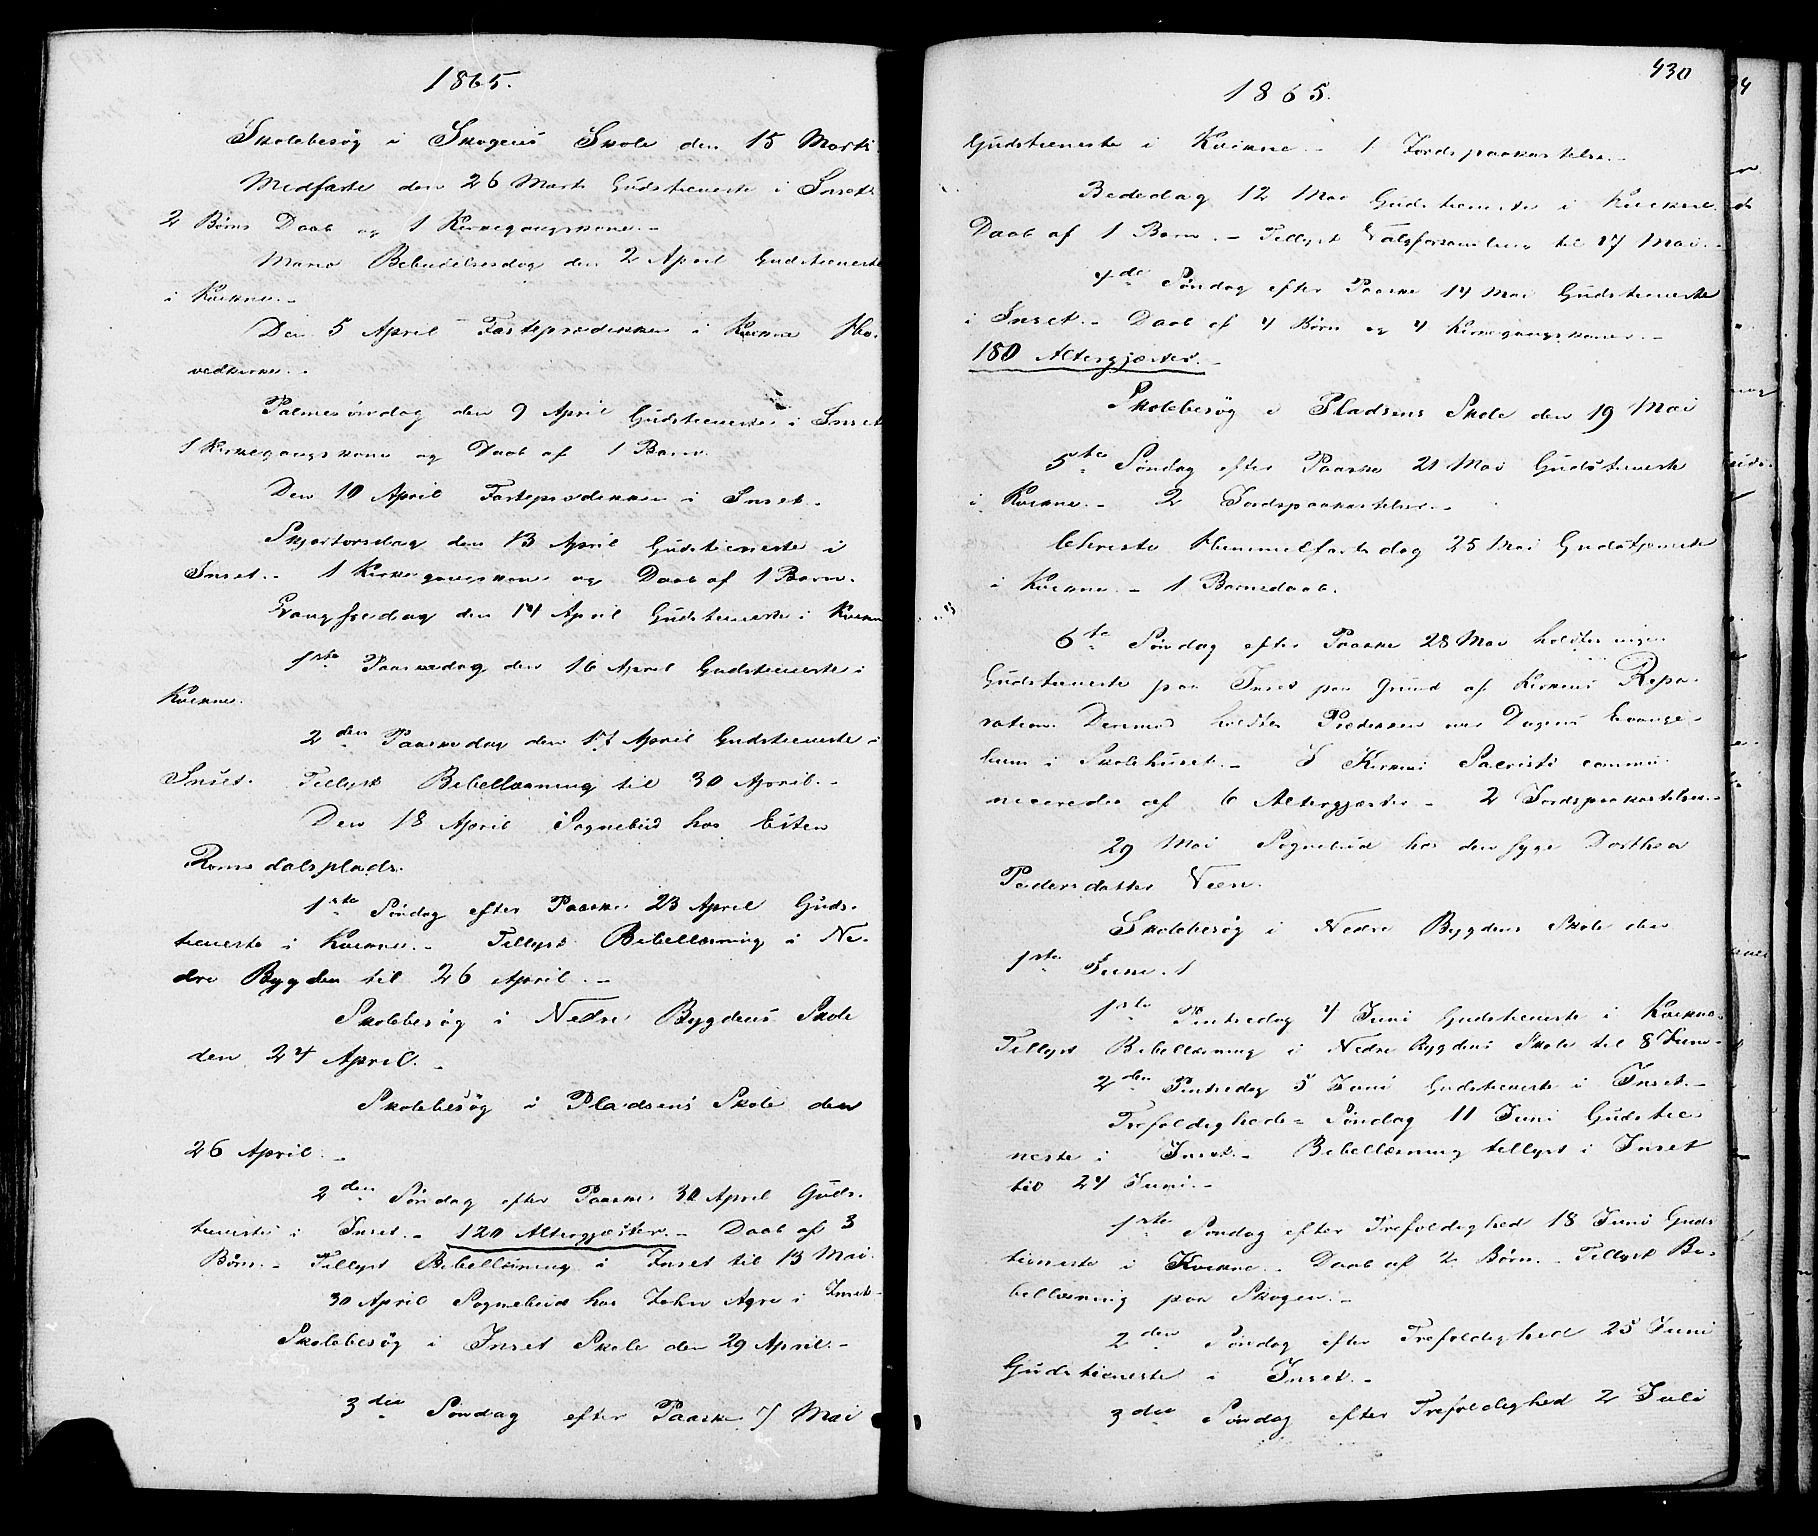 1865.
Skolebesøg i Skogens Skole den 15 Marts.
Midfaste den 26 Marts Gudstieneste i Inset
2 Børns Daab og 1 Kirkegangskone. -
Maria Bebudelsesdag den 2 April Gudstieneste
i Kvikne. -
Den 5 April Fasteprædikken i Kvikne Ho-
vedkirke. -
Palmesøndag den 9 April Gudstieneste i Inset
1 Kirkegangskone og Daab af 1 Barn.
Den 10 April Fasteprædikken i Inset. -
Skjærtorsdag den 13 April Gudstieneste i
Inset. - 1 Kirkegangskone og Daab af 1 Barn.
Langfredag den 14 April Gudstieneste i Kvikne
1ste Paaskedag den 16 April Gudstieneste i
Kvikne.
2den Paaskedag den 17 April Gudstieneste i
Inset. Tillyst Bibellæsning til 30 April. -
Den 18 April Sognebud hos Esten
Romsdalsplads.
1ste Søndag efter Paaske 23 April Guds-
tieneste i Kvikne. - Tillyst Bibellæsning i Ne-
dre Bygden til 26 April. -
Skolebesøg i Nedre Bygdens Skole
den 24 April. -
Skolebesøg i Pladsens Skole den
26 April. -
2den Søndag efter Paaske 30 April Guds-
tieneste i Inset. - 120 Altergjæster. - Daab af 3
Børn. - Tillyst Bibellæsning i Inset til 13 Mai.
30 April Sognebud hos John Agre i Inset -
Skolebesøg i Inset Skole den 29 April. -
3die Søndag efter Paaske 7 Mai
430
1865.
Gudstieneste i Kvikne. - 1 Jordspaakastelse. -
Bededag 12 Mai Gudstieneste i Kvikne.
Daab af 1 Barn. - Tillyst Valgforsamling til 17 Mai. -
4de Søndag efter Paaske 14 Mai Gudstieneste
i Inset. - Daab af 4 Børn og 4 Kirkegangskoner. -
180 Altergjæster. -
Skolebesøg i Pladsens Skole den 19 Mai
5te Søndag efter Paaske 21 Mai Gudstieneste
i Kvikne. - 2 Jordspaakastelser. -
Christi Himmelfartsdag 25 Mai Gudstjeneste
i Kvikne. - 1 Barnedaab.
6te Søndag efter Paaske 28 Mai holdtes ingen
Gudstieneste paa Inset paa Grund af Kirkens Repa-
ration. Derimod holdtes Prædiken over Dagens Evange-
lium i Skolehuset. - I Kirkens Sacristi commu-
niceredes af 6 Altergjæster - 2 Jordspaakastelser. -
29 Mai Sognebud hos den syge Dorthea
Pedersdatter Næsv.
Skolebesøg i Nedre Bygdens Skole den
1ste Juni.
1ste Pintsedag 4 Juni Gudstieneste i Kvikne.
Tillyst Bibellæsning i Nedre Bygdens Skole til 8 Juni -
2den Pintsedag 5 Juni Gudstieneste i Inset. -
Trefoldigheds-Søndag 11 Juni Gudstie-
neste i Inset. - Bibellæsning tillyst i Inset
til 24 Juni. -
1ste Søndag efter Trefoldighed 18 Juni Guds
tieneste i Kvikne. - Daab af 2 Børn. - Tillyst Bi-
bellæsning paa Skogen. -
2den Søndag efter Trefoldighed 25 Juni
Gudstieneste i Inset. -
3die Søndag efter Trefoldighed 2 Juli